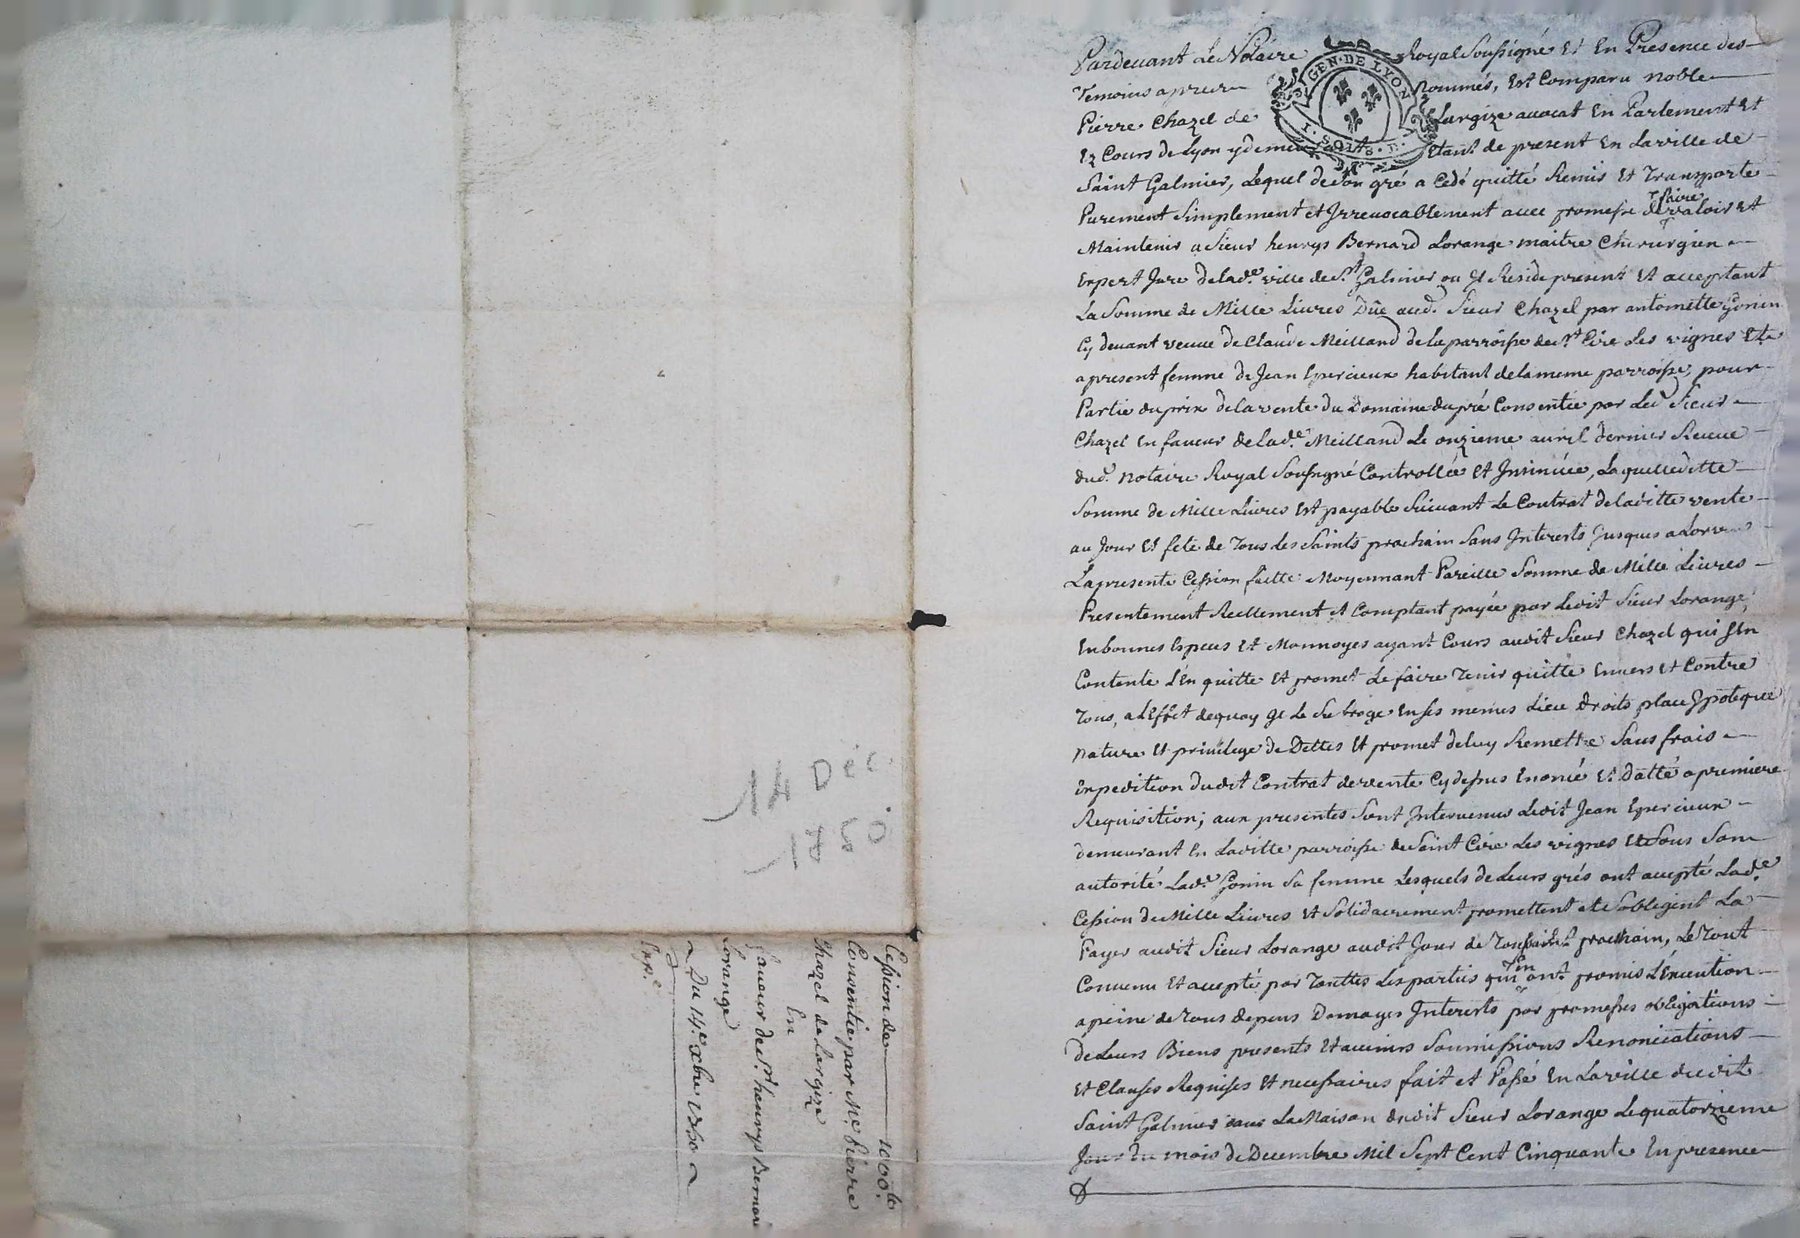 GEN · DE LYON
I · SOLS · D ·
Pardevant Le Notaire Royal Soussigné Et En Presence des
Temoins apres Nommés, Est Comparu noble
Pierre Chazel de Largize avocat En Parlement Et
Ez Cours de Lyon y demeurant Etant de present En La ville de
Saint Galmier, Lequel de son gré a Cedé quitté Remis Et Transporte
Purement Simplement et Irrevocablement avec promesse de faire valoir Et
Maintenir a Sieur henrys Bernard Lorange maitre Chirurgien
Expert Jure de lad.e ville de S.t Galmier ou Il Reside present Et acceptant
La Somme de Mille Livres Dûe aud. Sieur Chazel par antoinette Gonin
Cy devant veuve de Claude Meilland de la parroisse de S.t Cire Les vignes Et
a present femme de Jean Epercieux habitant de la meme parroisse, pour
Partie du prix de la vente du Domaine du pré Consentie par Led. Sieur
Chazel En faveur de lad.e Meilland Le onzieme avril dernier Receue
dud. notaire Royal Soussigné Controllée Et Insinuée, Laquelle ditte
Somme de Mille Livres Est payable Suivant Le Contrat de laditte vente
au Jour Et fete de Tous Les Saints prochain Sans Interests Jusques a Lors
La presente Cession faitte Moyennant Pareille Somme de Mille Livres
Presentement Reellement et Comptant payée par Ledit Sieur Lorange,
En bonnes Especes Et Monnoyes ayant Cours audit Sieur Chazel qui S'En
Contente L'En quitte Et promet Le faire Tenir quitte Envers Et Contre
Tous, a L'Effet de quoy Il Le Subroge En Ses memes Lieu droits place Ypoteque
nature Et privilege de Dettes Et promet de luy Remettre Sans frais
Expedition dudit Contrat de vente Cy dessus Enoncé Et Datté a premiere
Requisition; aux presentes Sont Intervenus Ledit Jean Epercieux
demeurant En Laditte parroisse de Saint Cire Les vignes Et Sous Son
autorité Lad.e Gonin Sa femme Lesquels de Leurs grés ont accepté Lad.e
Cession de Mille Livres Et Solidairement promettent et S'obligent La
Payer audit Sieur Lorange audit Jour de Toussaints prochain, Le Tout
Convenu Et accepté par Touttes Les parties qui En ont promis L'Execution
a peine de Tous depens Domages Interests par promesses obligations
de Leurs Biens presents Et avenirs Soumissions Renonciations
Et Clauses Requises Et necessaires fait et Passé En La ville dudit
Saint Galmier dans La Maison dudit Sieur Lorange Le quatorzieme
Jour du mois de Decembre Mil Sept Cent Cinquante En presence
14 Déc.
1750
Cession de 1000.lt
Consentie par M.e Pierre
Chazel de Largize
En
faveur de S.r henrys Bernard
Lorange
Du 14.e xbre 1750
Exp.e